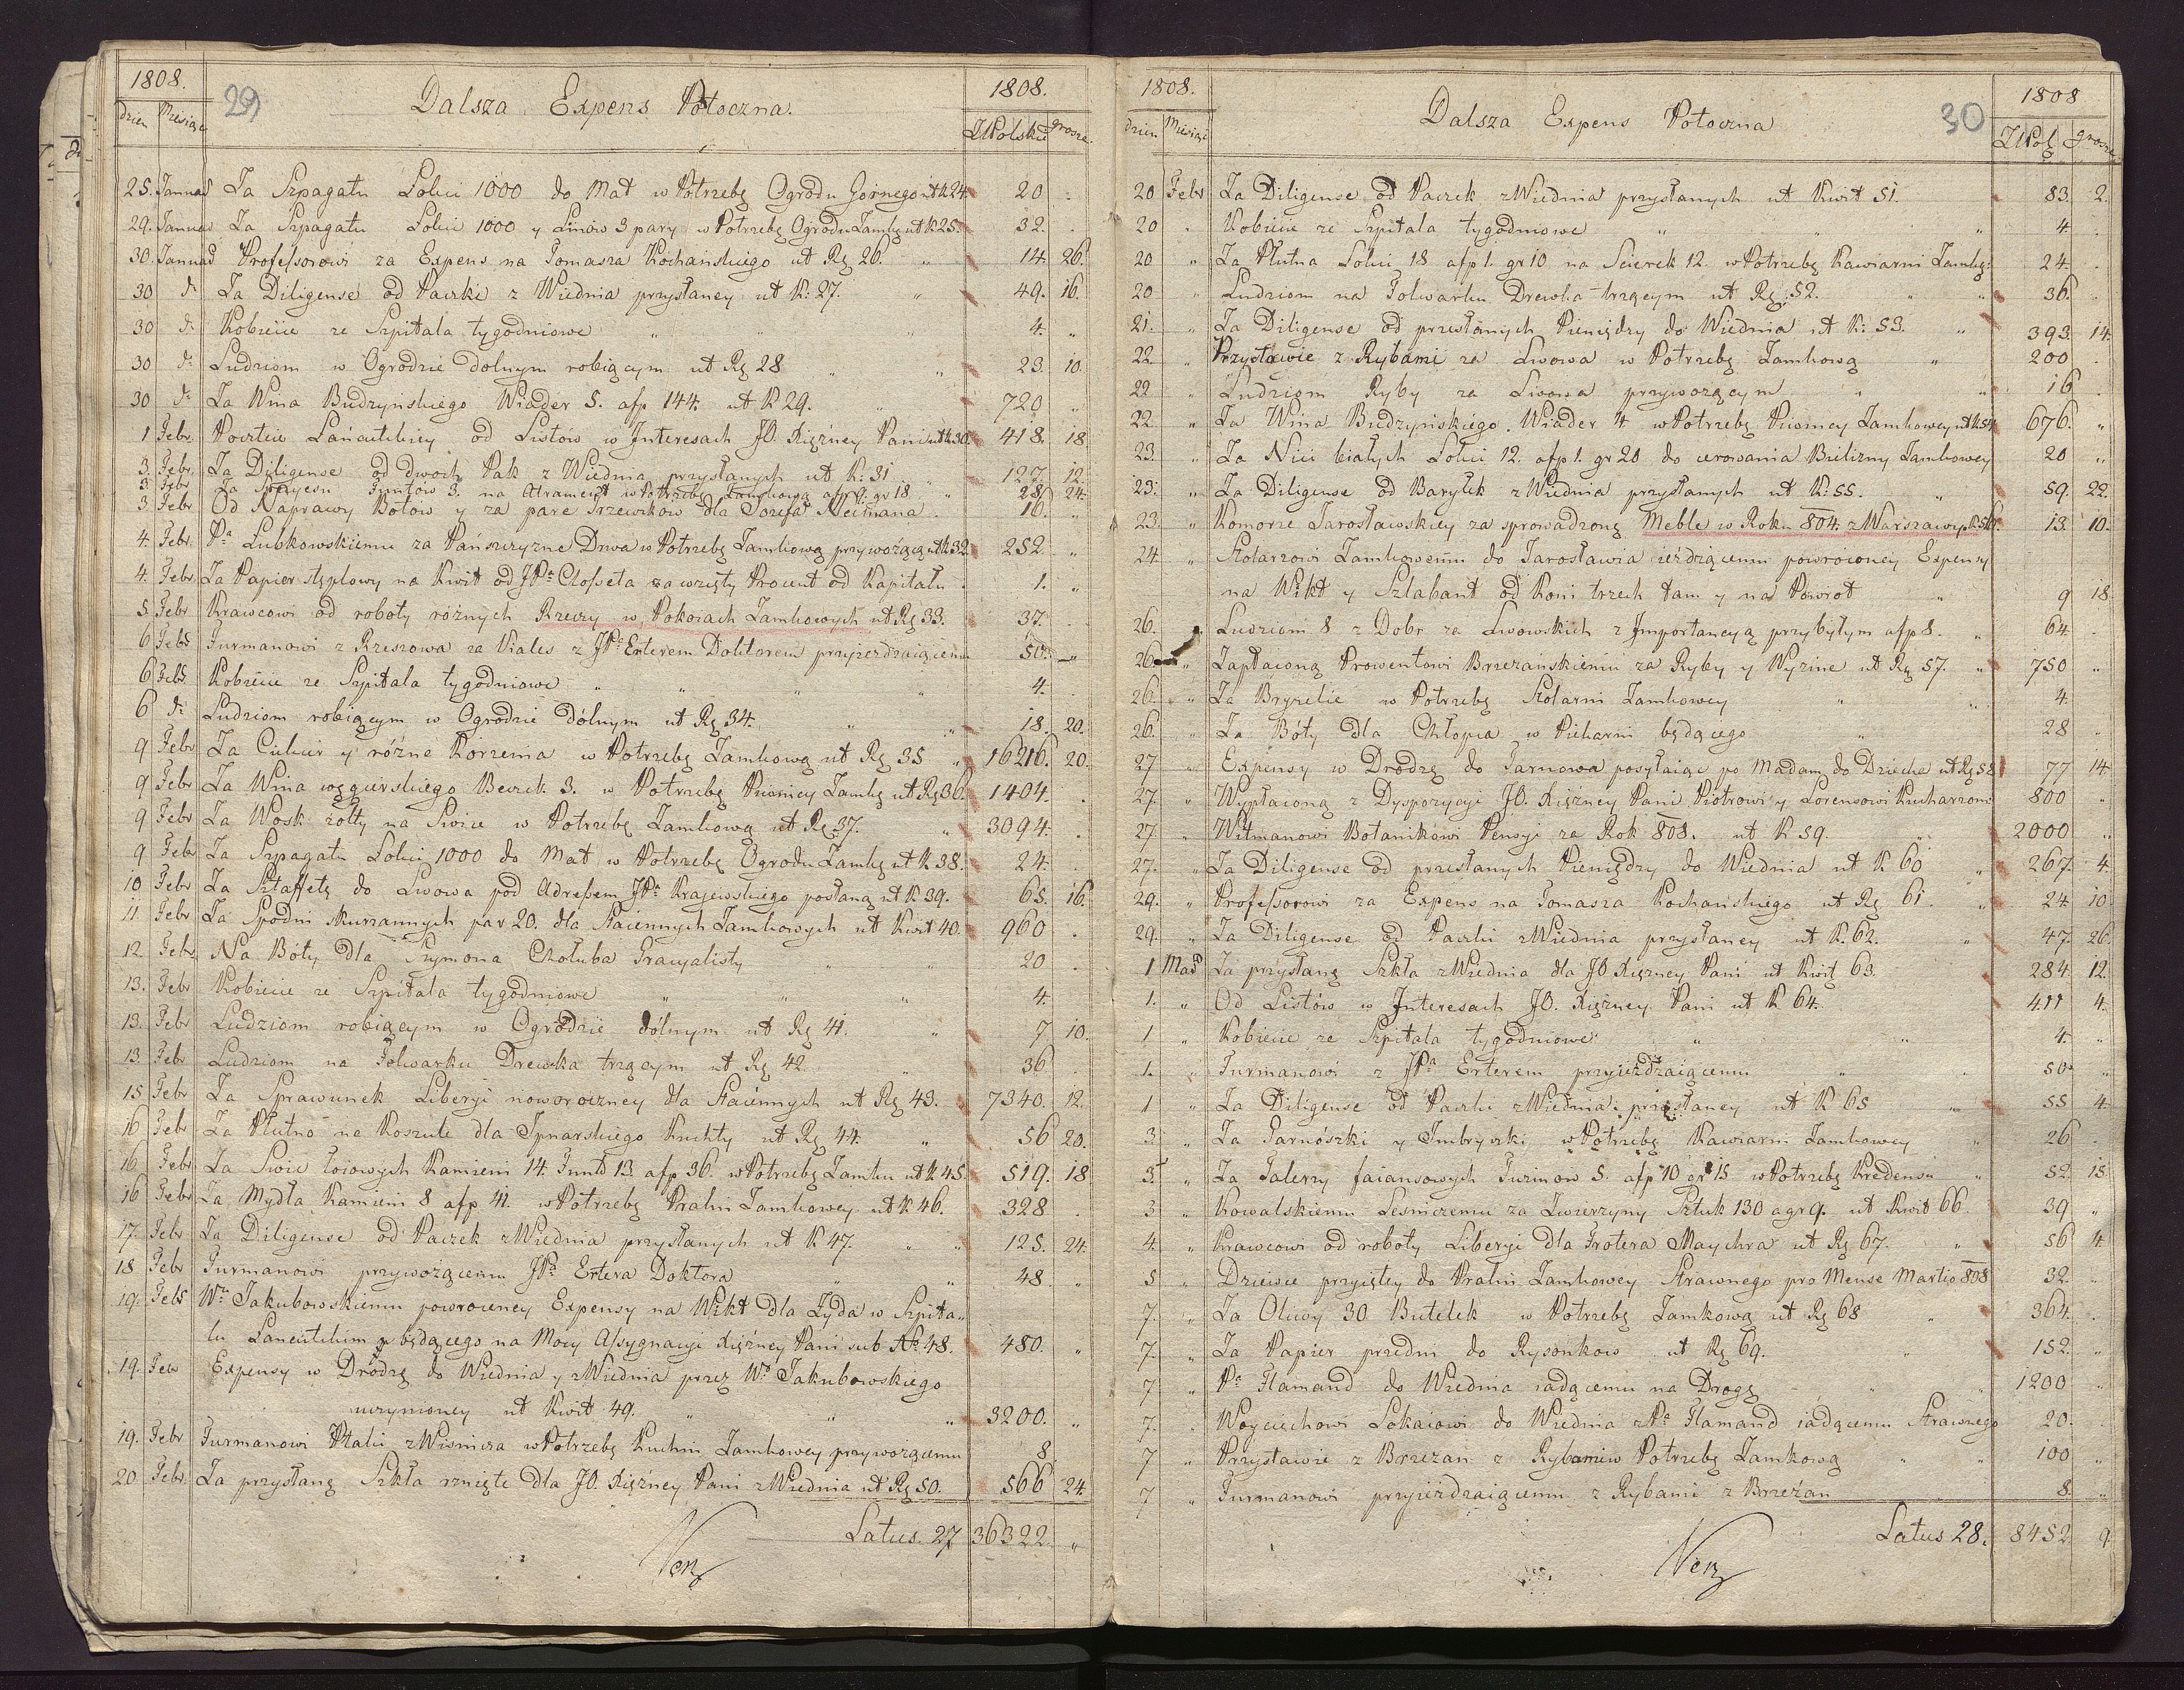 1808.
29
Dalsza Expens Potoczna.
1808.
dzien Miesiąc
ZłPolskie grosze
25. Januar Za Szpagatu Łokci 1000 do Mat w Potrzebę Ogrodu Gornego ut k 24 20
29. Januar Za Szpagatu Łokci 1000 y Linow 3 pary w Potrzebę Ogrodu Zamkg ut K 25. 32.
30. Januar Professorowi za Expens na Tomasza Kochanskiego ut Rg 26. 14. 26.
30 do Za Diligense od Paczki z Wiednia przysłaney ut K: 27. 49. 16.
30 do Kobiecie ze Szpitala tygodniowe 4.
30 do Ludziom w Ogrodzie dolnym robiącym ut Rg 28 23. 10.
30 do Za Wina Budzyńskiego Wiader 5. afp 144. ut K 29. 720
1 Febr. Poczcie Łańcutskiey od Listów w Interesach JO. Xiężney Pani ut k 30. 418. 18
3. Febr. Za Diligense od dwoch Pak z Wiednia przysłanych ut K: 31 127. 12.
3 Febr Funtow 3. na Atrament w Potrzebę Zamkową gr 18 28 24.
3. Febr Od Naprawy Botow y za pare Trzewikow dla Jozefa Neimana 16.
4. Febr. Pa Lubkowskiemu za Pańszczyzne Drwa w Potrzebę Zamkową przywożącą ut k 32 252
4. Febr. Za Papier stęplowy na Kwit od JPa Closseta za wzięty Procent od Kapitału 1.
5 Febr Krawcowi od roboty róznych Rzeczy w Pokoiach Zamkowych ut Rg 33. 37.
6 Febr Furmanowi z Rzeszowa za Viales z JPa Erterem Doktorem przyiezdzaiącemu 50.
6 Febr. Kobiecie ze Szpitala tygodniowe 4.
6 do Ludziom robiącym w Ogrodzie dólnym ut Rg 34. 18. 20.
9 Febr Za Cukier y różne Korzenia w Potrzebę Zamkową ut Rg 35 16216. 20.
9 Febr Za Wina węgierskiego Beczek 3. w Potrzebę Piwnicy Zamkg ut Rg 36. 1404.
9 Febr Za Wosk zołty na Swice w Potrzebę Zamkową ut Rg 37. 3094.
9 Febr Za Szpagatu Łokci 1000 do Mat w Potrzebę Ogrodu Zamkg ut K 38. 24.
10 Febr Za Sztaffetę do Lwowa pod Adressem JPa Krajewskiego posłaną ut K 39. 65. 16.
11 Febr Za Spodni skurzannych par 20. dla Staiennych Zamkowych ut Kwit 40. 960
12. Febr. Na Bóty dla Szymona Chołuba Gracyalisty 20
13. Febr Kobiecie ze Szpitala tygodniowe 4.
13. Febr Ludziom robiącym w Ogrodzie dólnym ut Rg 41. 7 10.
13. Febr Ludziom na Folwarku Drewka trzącym ut Rg 42. 36
15 Febr Za Sprawunek Liberyi noworoczney dla Staiennych ut Rg 43. 7340. 12.
16 Febr Za Płutno na Koszule dla Spnarskiego Kuchty ut Rg 44. 56 20.
16. Febr Za Swic łoiowych Kamieni 14. Funtt 13 afp 36. w Potrzebę Zamku ut K 45. 519. 18
16 Febr Za Mydła Kamieni 8 afp 41. w Potrzebę Pralni Zamkowey ut K 46. 328
17. Febr Za Diligense od Paczek z Wiednia przysłanych ut K 47. 125. 24.
18 Febr Furmanowi przywożącemu JPa Ertera Doktora 48
19. Febr Wu Jakubowskiemu powroconey Expensy na Wikt dla Żyda w Szpita-
lu Lancutskim będącego na Mocy Assygnacyi Xiężney Pani sub No. 48. 480.
19. Febr Expensy w Drodzę do Wiednia y z Wiednia przez Wo Jakubowskiego
uczynioney ut Kwit 49. 3200.
19. Febr Furmanowi Ptaki z Wisnicza w Potrzebę Kuchni Zamkowey przywozącemu 8
20. Febr. Za przysłanę Szkła rznięte dla JO. Xiężney Pani z Wiednia ut Rg 50. 566 24.
Latus. 27 36322.
1808.
Dalsza Expens Potoczna
30
1808
dzien Miesiąc
ZłPol grosze
20 Febr Za Diligense od Paczek z Wiednia przysłanych ut Kwit 51. 83. 2.
20 Kobiecie ze Szpitala tygodniowe 4
20 Za Płutna Łokci 18 afp 1. gr 10 na Scierek 12. w Potrzebę Kawiarni Zamkg: 24.
20 Ludziom na Folwarku Drewka trzącym ut Rg: 52. 36.
21. Za Diligense od przesłanych Pieniędzy do Wiednia ut K: 53. 393. 14.
22. Przystawie z Rybami ze Lwowa w Potrzebę Zamkową 200
22 Ludziom Ryby ze Lwowa przywozącym 16
22. Za Wina Budzyńskiego Wiader 4 w Potrzebę Piwnicy Zamkowey ut K 54 676.
23. Za Nici białych Łokci 12. afp 1. gr 20 do cerowania Bielizny Zamkowey 20
23. Za Diligense od Baryłek z Wiednia przysłanych ut K: 55. 59. 22.
23. Komorze Jarosławskiey za sprowadzoną Meble w Roku 804. z Warszawy K 56. 13. 10.
24. Stolarzowi Zamkowemu do Jarosławia ieżdzącemu powroconey Expensy
na Wikt y Szlabant od Koni trzech tam y na Powrot 9 18.
26. Ludziom 8 z Dobr za Lwowskich z Importancyą przybyłym afp 8. 64
26 Zapłaconą Prowentowi Brzezanskiemu za Ryby y Wyzine ut Rg 57. 750
26. Za Bryzelie w Potrzebę Stolarni Zamkowey 4.
26. Za Bóty dla Chłopca w Piekarni będącego 28
27 Expensy w Drodzę do Tarnowa posyłaiąc po Madam do Dziecka ut Rg 58 77 14.
27. Wypłaconą z Dyspozycyi JO. Xiężney Pani Piotrowi y Lorensowi Kucharzom 800
27. Witmanowi Botanikowi Pensyi za Rok 808. ut K 59. 2000
27. Za Diligense od przesłanych Pieniędzy do Wiednia ut K 60 267. 4.
29. Professorowi za Expens na Tomasza Kochanskiego ut Rg 61. 24. 10
29. Za Diligense od Paczki z Wiednia przysłaney ut K. 62. 47. 26.
1 Mar Za przysłanę Szkła z Wiednia dla JO Xiężney Pani ut Kwit 63. 284. 12.
1. Od Listów w Interesach JO. Xiężney Pani ut K 64. 411 4.
1 Kobiecie ze Szpitala tygodniowe 4.
1. Furmanowi z JPa Erterem przyieżdżaiącemu 50.
1 Za Diligense od Paczki z Wiednia przysłaney ut K 65 55 4.
3 Za Garnószki y Imbryczki w Potrzebę Kawiarni Zamkowey 26
3. Za Talerzy faiansowych Tuzinow 5. afp 10 gr 15 w Potrzebę Kredensu 52. 15
3 Kowalskiemu Lesniczemu za Zwierzyny Sztuk 130 a gr 9. ut Kwit 66. 39
4. Krawcowi od roboty Liberyi dla Frotera Maychra ut Rg 67. 56 4.
5 Dziewce przyiętey do Pralni Zamkowey Strawnego pro Mense Martio 808 32.
7. Za Oliwy 30. Butelek w Potrzebę Zamkową ut Rg 68 364.
7. Za Papier przedni do Rysonkow ut Rg 69. 152.
7 Pa Flamand do Wiednia iadącemu na Drogę 1200
7. Woyciechowi Lokaiowi do Wiednia z Pa Flamand iadącemu Strawnego 20.
7 Przystawie z Brzezan z Rybami w Potrzebę Zamkową 100
7 Furmanowi przyiezdzaiącemu z Rybami z Brzeżan 8.
Latus 28. 8452 9